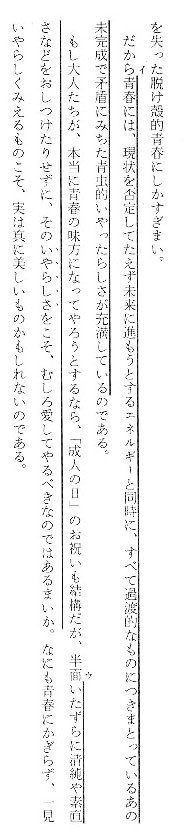 を失った脱け殻的青春にしかすぎまい。
だから青春には、現状を否定してたえず未来に進もうとするエネルギーと同時に、すべて過渡的なものにつきまとっているあの
イ
未完成で矛盾にみちた青虫的いやったらしさが充満しているのである。
もし大人たちが、本当に青春の味方になってやろうとするなら、「成人の日」のお祝いも結構だが、半面いたずらに清純や素直
ウ
さなどをおしつけたりせずに、そのいやらしさをこそ、むしろ愛してやるべきなのではあるまいか。なにも青春にかぎらず、一見
いやらしくみえるものこそ、実は真に美しいものかもしれないのである。